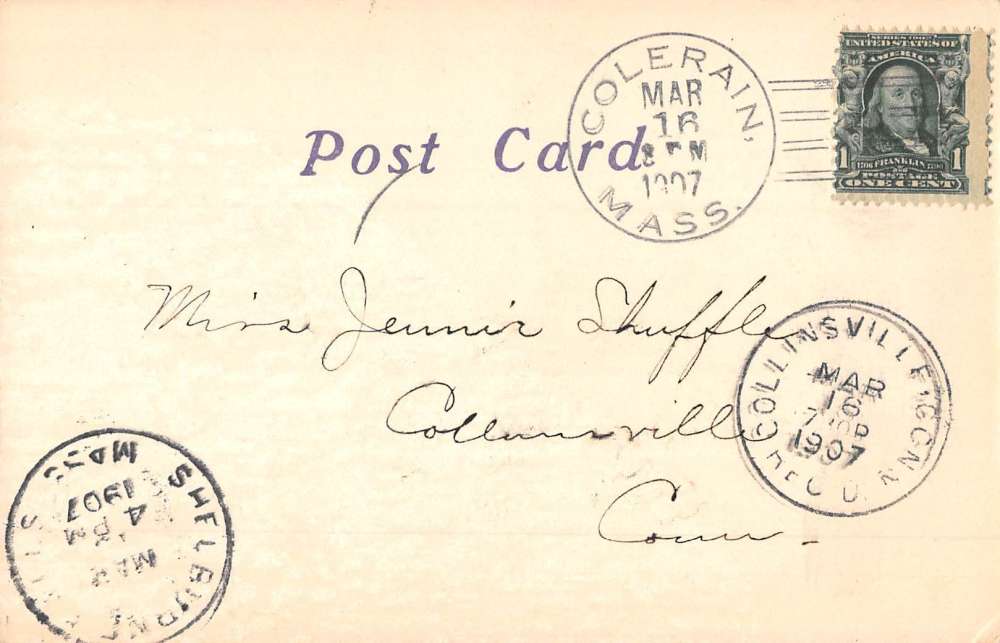 Post Card
COLERAIN,
MAR
16
PM
1907
MASS.
SERIES 1902
UNITED STATES OF
AMERICA
1 FRANKLIN 1
POSTAGE
ONE CENT
Miss Jennie Shuffle
Collinsville
Conn.
COLLINSVILLE, CONN.
MAR
16
7
1907
REC'D.
SHELBURNE FALLS
MASS
MAR
4 PM
1907